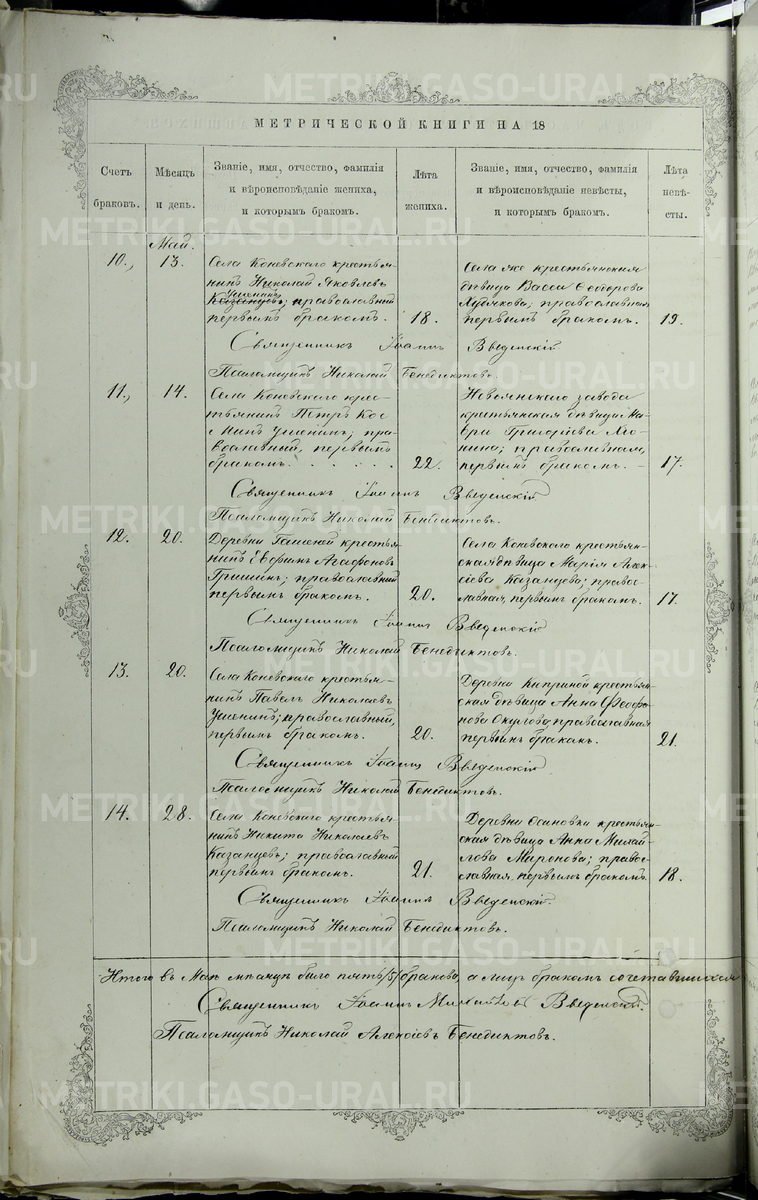 МЕТРИЧЕСКОЙ КНИГИ НА 18
Счетъ
браковъ.
Мѣсяцъ
и день.
Званіе, имя, отчество, фамилія
и вѣроисповѣданіе жениха,
и которымъ бракомъ.
Лѣта
жениха.
Званіе, имя, отчество, фамилія
и вѣроисповѣданіе невѣсты,
и которымъ бракомъ.
Лѣта
невѣ-
сты.
Май.
10.,
13.
Села Коневскаго крестья-
нинъ Николай Яковлевъ
Ушенинъ
Казанцевъ; православный
первымъ бракомъ.
18.
Села же крестьянская
дѣвица Васса Ѳеодорова
православная
первымъ бракомъ.
19.
Священникъ Іоаннъ Введенскій
Псаломщикъ Николай Бенедиктовъ.
11.,
14.
Села Коневскаго крес-
тьянинъ Петръ Кос
минъ Ушенинъ; пра-
вославный, первымъ
бракомъ.
22.
Невьянскаго завода
крестьянская дѣвица Ма-
вра Григоріева
православная,
первымъ бракомъ.
17.
Священникъ Іоаннъ Введенскій
Псаломщикъ Николай Бенедиктовъ.
12.
20.
Деревни крестья-
нинъ Евфимъ Агафоновъ
Гришинъ; православный
первымъ бракомъ.
20.
Села Коневскаго крестьян-
ская дѣвица Марія Алек-
сіева Казанцова; правос-
лавная, первымъ бракомъ.
17.
Священникъ Іоаннъ Введенскій
Псаломщикъ Николай Бенедиктовъ.
13.
20.
Села Коневскаго крестья-
нинъ Павелъ Николаевъ
Ушенинъ; православный,
первымъ бракомъ.
20.
Деревни Киприной крестьян-
ская дѣвица Анна Ѳеофа-
нова Окулова, православная
первымъ бракомъ.
21.
Священникъ Іоаннъ Введенскій
Псаломщикъ Николай Бенедиктовъ.
14.
28.
Села Коневскаго крестья-
нинъ Никита Николаевъ
Казанцевъ; православный
первымъ бракомъ.
21.
Деревни Осиновки крестьян-
ская дѣвица Анна Михай-
лова Миронова; правос-
лавная, первымъ бракомъ.
18.
Священникъ Іоаннъ Введенскій.
Псаломщикъ Николай Бенедиктовъ.
Итого въ Маѣ мѣсяцѣ было пять /5/ браковъ, а лицъ бракомъ сочетавшихся
Священникъ Іоаннъ Введенскій.
Псаломщикъ Николай Алексіевъ Бенедиктовъ.
METRIKI.GASO-URAL.RU